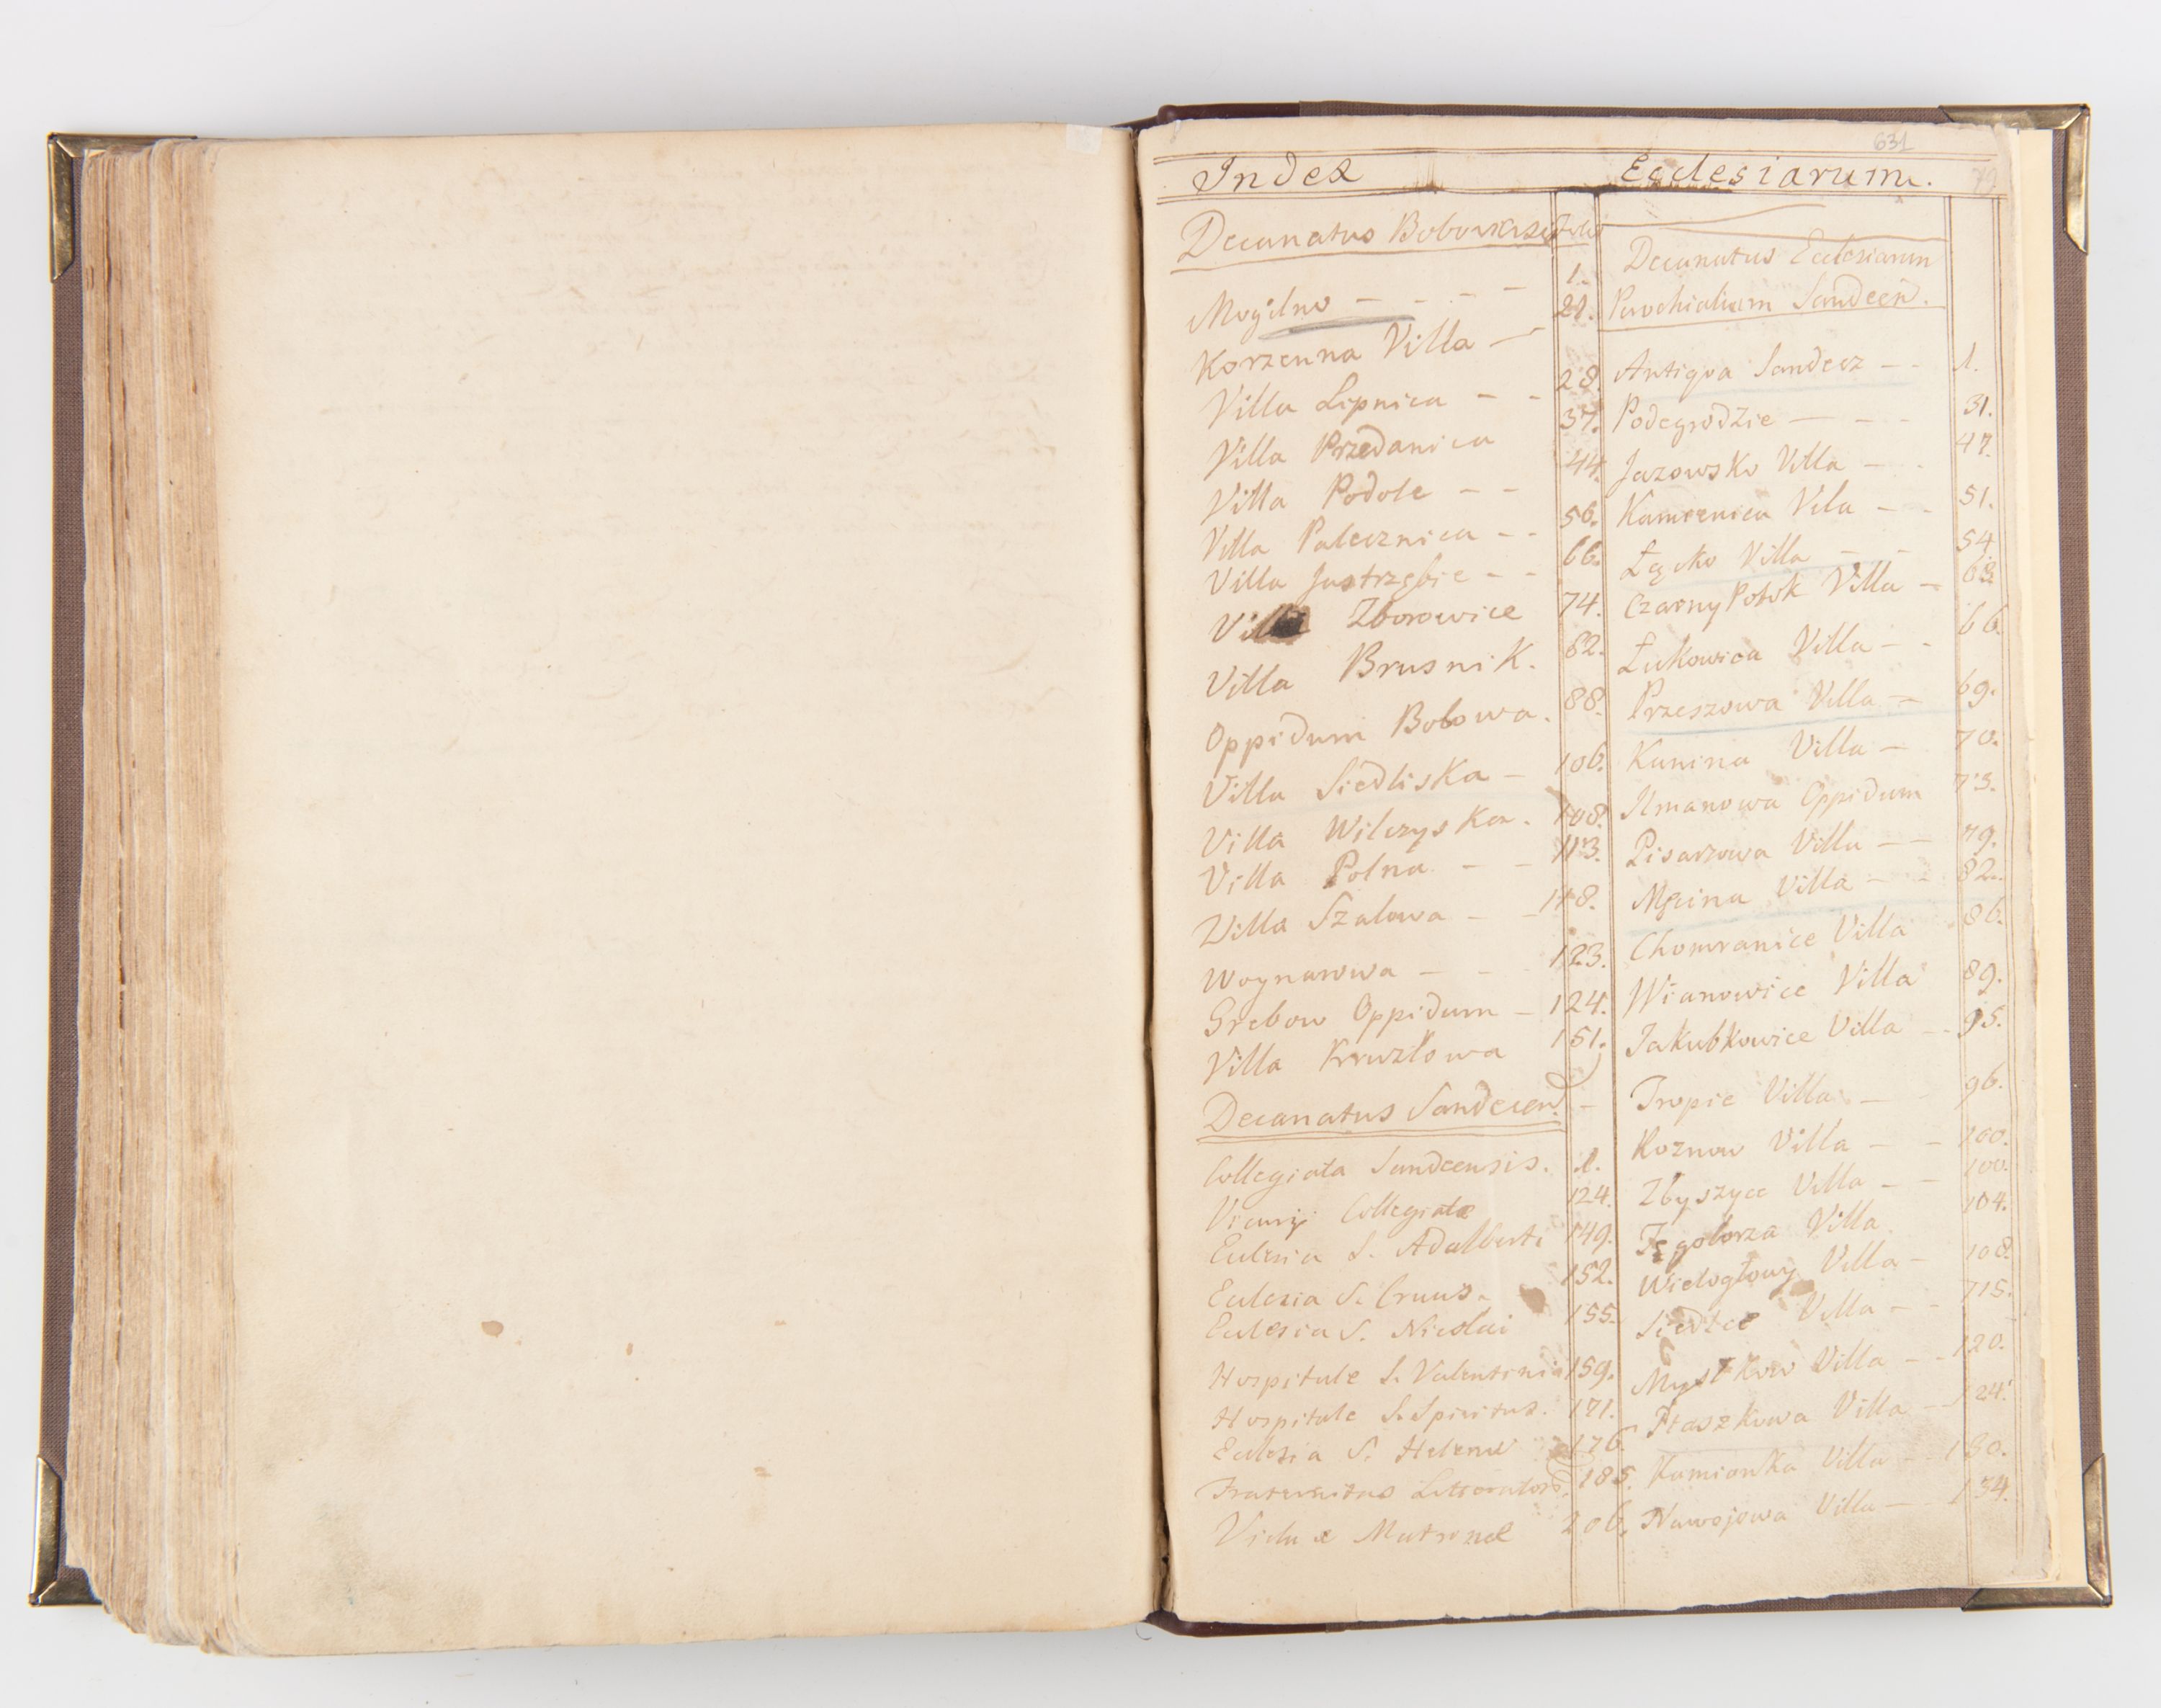 631
Index Ecclesiarum.
Decanatus Bobovicen
Mogilno - - - - 1.
Korzenna Villa - 21.
Villa Lipnica - - 28.
Villa Przedanica 37.
Villa Podole - - 44.
Villa Palecznica - - 56.
Villa Jastrzębie - - 66.
Villa Zborowice 74.
Villa Brusnik. 82.
Oppidum Bobowa. 88.
Villa Siedliska - 106.
Villa Wilczyska. 108.
Villa Polna - - 113.
Villa Szalowa - - 118.
Woynarowa - - 123.
Grebow Oppidum - 124.
Villa Kruzlowa 151.
Decanatus Sandecen. -
Collegiata Sandecensis. 1.
Vicarij Collegiatæ 124.
Eclesia S. Adalberti 149.
Eclesia S. Crucis. 152.
Eclesia S. Nicolai 155.
Hospitale S. Valentini 159.
Hospitale S. Spiritus. 171.
Eclesia S. Helenæ 176.
Fraternitas Litteratorũ. 185.
Viduæ Matronæ 206.
Decanatus Ecclesiarum
Parochialium Sandecen.
Antiqva Sandecz - - 1.
Podegrodzie - - - 31.
Jazowsko Villa - - 47.
Kamienica Vila - - 51.
Łącko Villa - - 54
Czarny Potok Villa - 63
Łukowica Villa - - 66.
Przeszowa Villa - 69.
Kanina Villa - 70.
Ilmanowa Oppidum 73.
Pisarzowa Villa - - 79.
Męcina Villa - - 82.
Chomranice Villa 86.
Wianowice Villa 89.
Jakubkowice Villa - - 95.
Tropie Villa - - 96.
Roznow Villa - - 100.
Zbyszyce Villa - - 100.
Tęgoborza Villa 104.
Wielogłowy Villa - 108.
Siedlce Villa - - 115.
Mystkow Villa - - 120.
Ptaszkowa Villa - - 124.
Kamionka Villa - - 130.
Nawojowa Villa - 134.